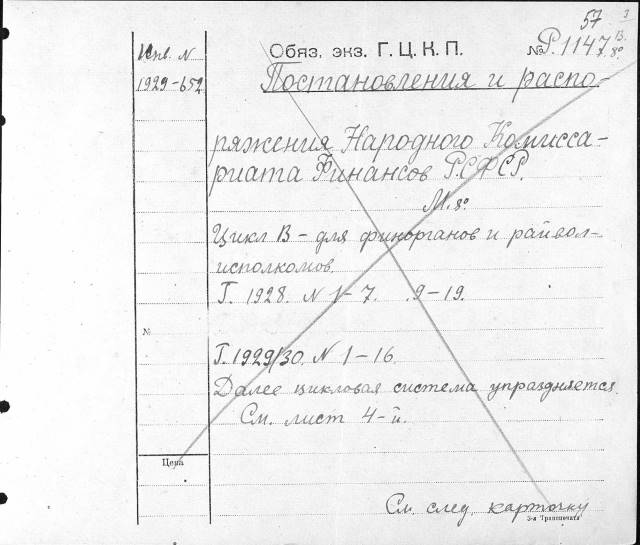 57 3
Инв. N Обяз. экз. Г. Ц. К. П. № Р.1147 13. 8º
1929-652 Постановления и распо-
ряжения Народного Комисса-
риата Финансов Р.С.Ф.С.Р.
М. 8º
Цикл В - для финорганов и райвол-
исполкомов.
Г. 1928. N 1-7. 9-19.
№
Г. 1929/30. N 1-16.
Далее цикловая система упраздняется.
См. лист 4-й.
Цена
См. след. карточку
3-я Транспечати